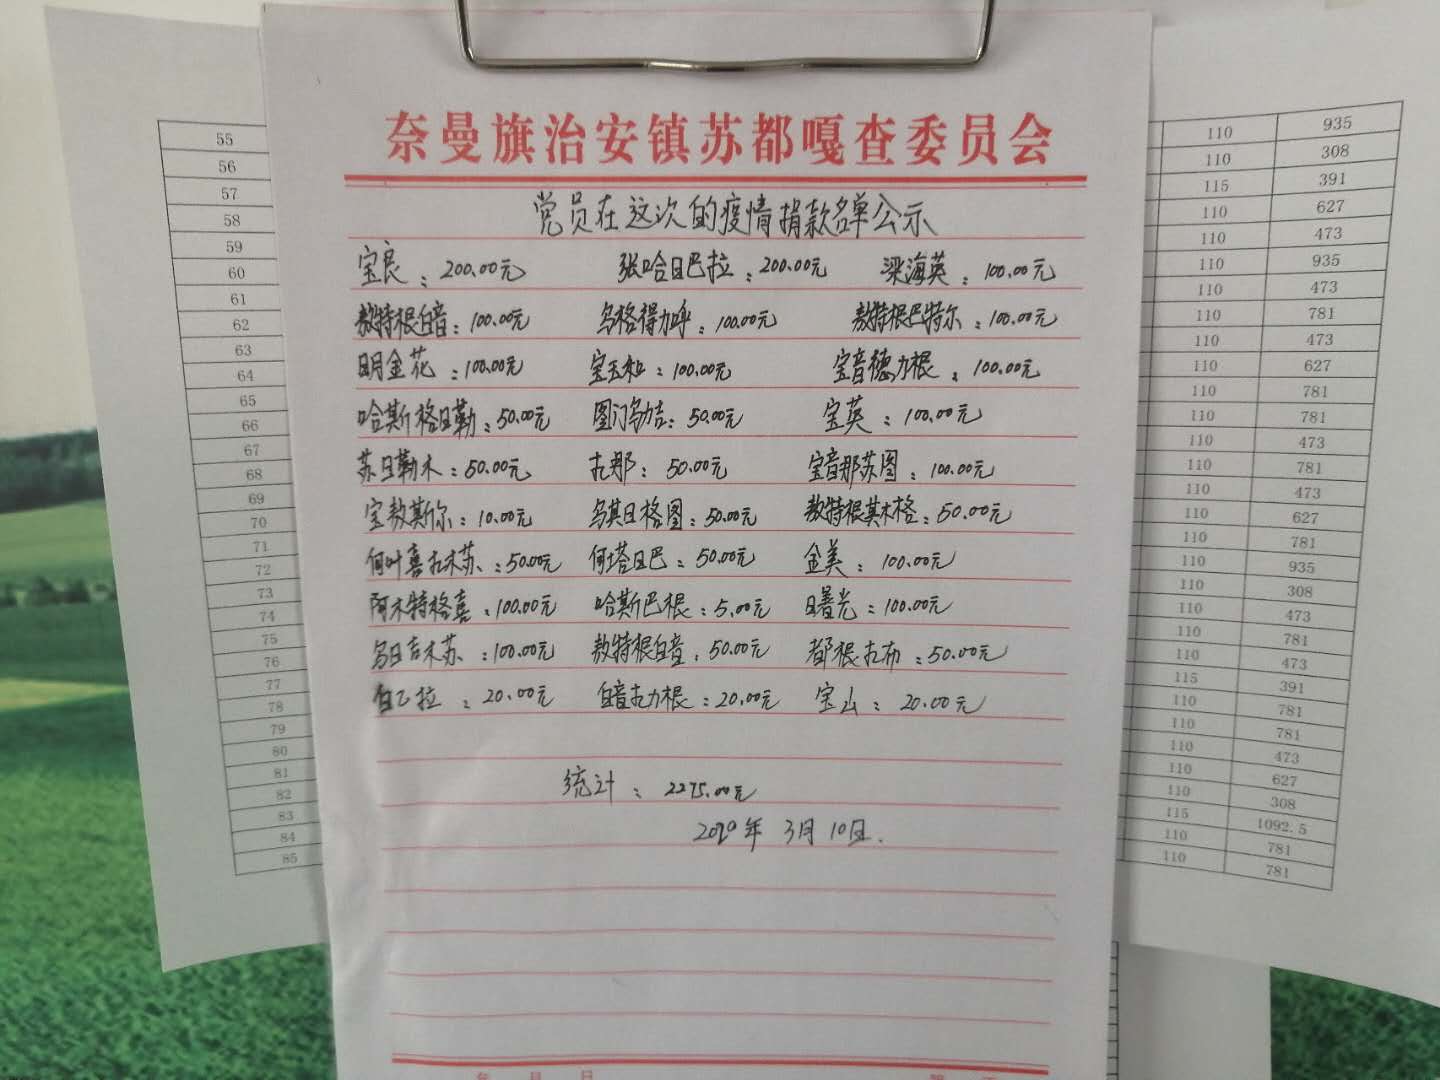 奈曼旗治安镇苏都嘎查委员会
党员在这次的疫情捐款名单公示
宝良：200.00元 张哈日巴拉：200.00元 梁海英：100.00元
敖特根白音：100.00元 乌格得力呼：100.00元 敖特根巴特尔：100.00元
明金花：100.00元 宝玉和：100.00元 宝音德力根：100.00元
哈斯格日勒：50.00元 图门乌力吉：50.00元 宝英：100.00元
苏日勒木：50.00元 古那：50.00元 宝音那苏图：100.00元
宝敖斯尔：10.00元 乌其日格图：50.00元 敖特根其木格：50.00元
何叶喜古木苏：50.00元 何塔日巴：50.00元 金美：100.00元
阿木特格喜：100.00元 哈斯巴根：5.00元 日曙光：100.00元
乌日吉木苏：100.00元 敖特根白音：50.00元 都根古布：50.00元
白乙拉：20.00元 白音古力根：20.00元 宝山：20.00元
统计：2275.00元
2020年3月10日.
55
56
57
58
59
60
61
62
63
64
65
66
67
68
69
70
71
72
73
74
75
76
77
78
79
80
81
82
83
84
85
110 935
110 308
115 391
110 627
110 473
110 935
110 473
110 781
110 473
110 627
110 781
110 781
110 473
110 781
110 473
110 627
110 781
110 935
110 308
110 473
110 781
110 473
115 391
110 781
110 781
110 473
110 627
110 308
115 1092.5
110 781
110 781